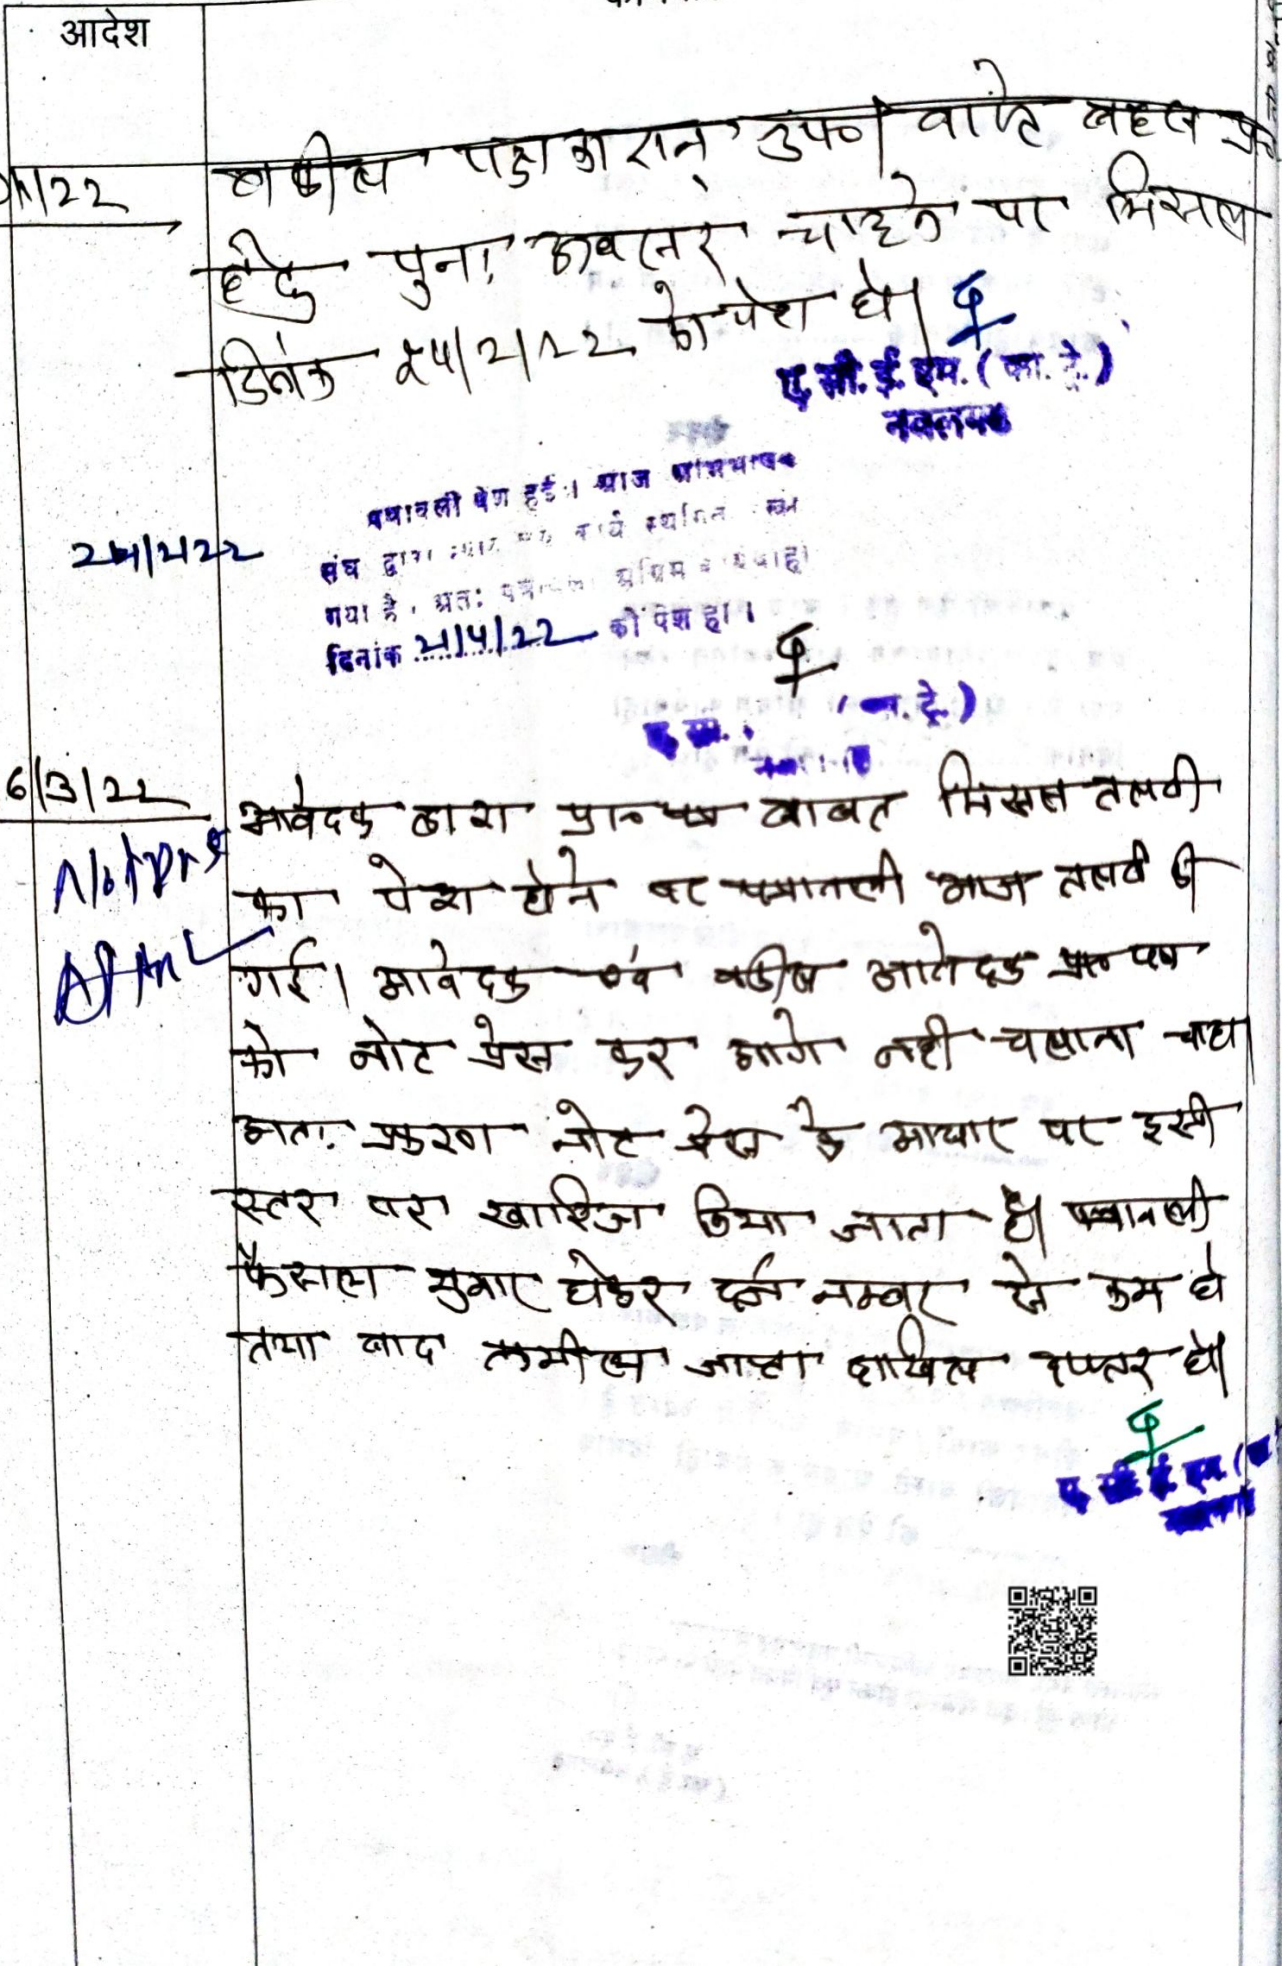 आदेश
/1/22 वकील पक्षकारान उप0। वास्ते बहस
हेतु पुनः अवसर चाहने पर मिसल
दिनांक 24/2/22 को पेश हो।
ए.सी.ई.एम. (फा. ट्रे.)
नवलगढ
पत्रावली पेश हुई। आज अभिभाषक
24/2/22 संघ द्वारा कार्य स्थगित रखा
गया है। अतः अग्रिम
दिनांक 21/4/22 को पेश हो।
(फा. ट्रे.)
6/3/22 आवेदक द्वारा प्रा0 पत्र बाबत मिसल तलबी
का पेश होने पर पत्रावली आज तलब की
गई। आवेदक एवं वकील आवेदक प्रा0 पत्र
को नोट प्रेस कर आगे नही चलाना चाहा
अतः प्रकरण नोट प्रेस के आधार पर इसी
स्तर पर खारिज किया जाता है। पत्रावली
फैसला सुमार होकर दर्ज नम्बर से कम हो
तथा बाद तकमील जाप्ता दाखिल दफ्तर हो।
ए. सी. ई. एम.